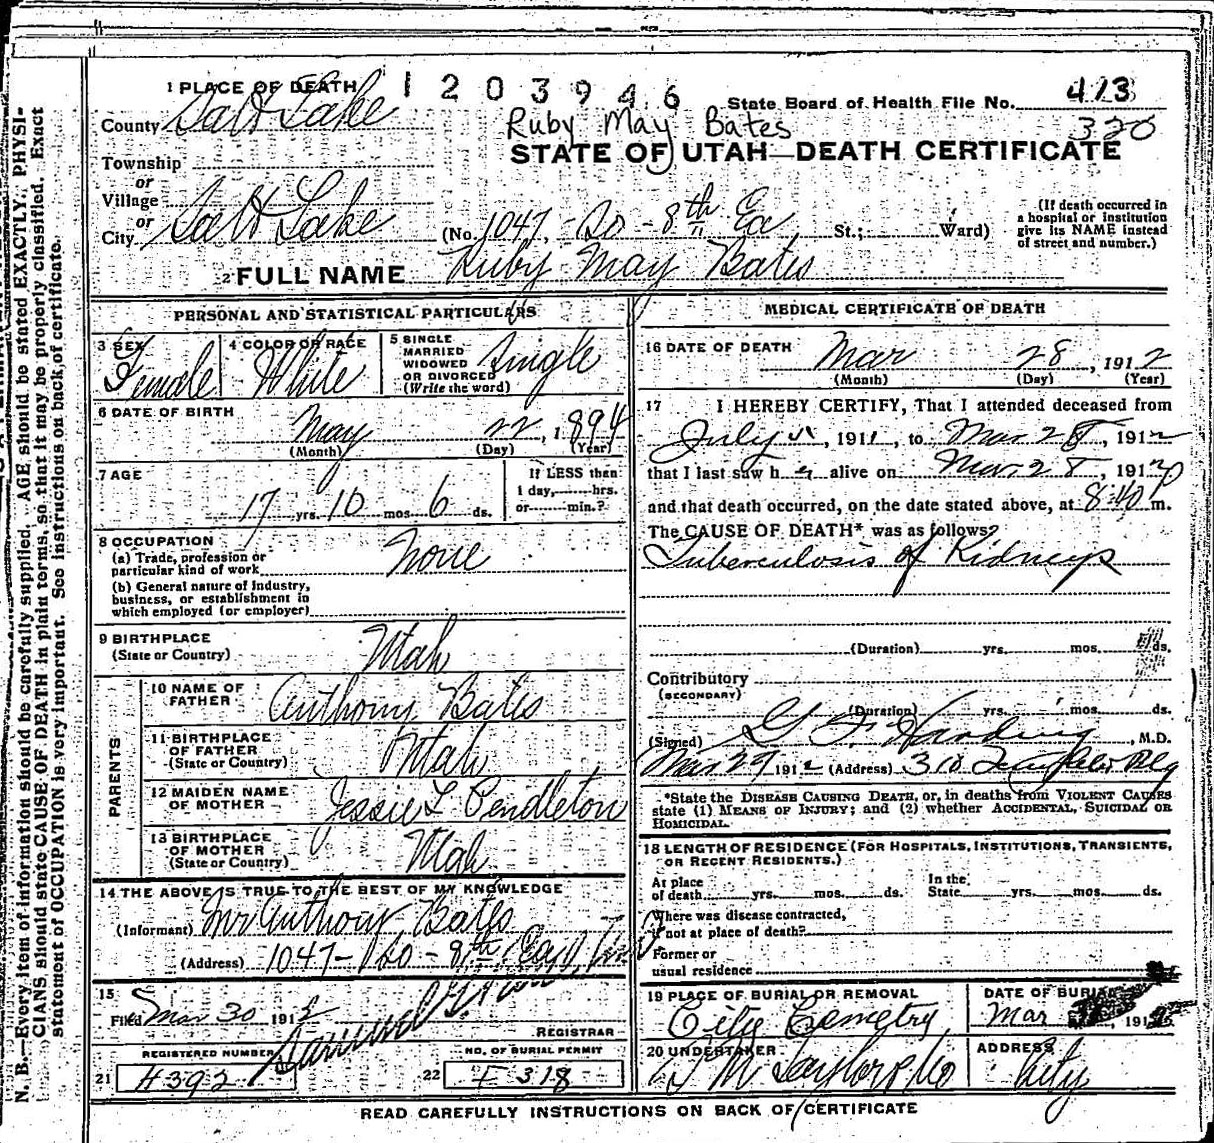 1 PLACE OF DEATH 1203946 State Board of Health File No. 413
County Salt Lake Ruby May Bates 320
Township STATE OF UTAH—DEATH CERTIFICATE
or
Village
or
City Salt Lake (No. 1047 - So - 8th Ea St.; Ward) (If death occurred in a hospital or institution give its NAME instead of street and number.)
2 FULL NAME Ruby May Bates
PERSONAL AND STATISTICAL PARTICULARS
3 SEX Female
4 COLOR OR RACE White
5 SINGLE MARRIED WIDOWED OR DIVORCED (Write the word) Single
6 DATE OF BIRTH May 22, 1894
(Month) (Day) (Year)
7 AGE 17 yrs. 10 mos. 6 ds.
If LESS than 1 day, hrs. or min.?
8 OCCUPATION
(a) Trade, profession or particular kind of work None
(b) General nature of industry, business, or establishment in which employed (or employer)
9 BIRTHPLACE
(State or Country) Utah
PARENTS
10 NAME OF FATHER Anthony Bates
11 BIRTHPLACE OF FATHER (State or Country) Utah
12 MAIDEN NAME OF MOTHER Jessie L Pendleton
13 BIRTHPLACE OF MOTHER (State or Country) Utah
14 THE ABOVE IS TRUE TO THE BEST OF MY KNOWLEDGE
(Informant) Mr Anthony Bates
(Address) 1047 - So - 8th East
15
Filed Mar 30 1912
REGISTRAR
REGISTERED NUMBER
21 H392
NO. OF BURIAL PERMIT
22 F 318
MEDICAL CERTIFICATE OF DEATH
16 DATE OF DEATH Mar 28, 1912
(Month) (Day) (Year)
17 I HEREBY CERTIFY, That I attended deceased from
July, 1911, to Mar 28, 1912
that I last saw her alive on Mar 28, 1912
and that death occurred, on the date stated above, at 8:40 P m.
The CAUSE OF DEATH* was as follows:
Tuberculosis of Kidneys
(Duration) yrs. mos. ds.
Contributory
(SECONDARY)
(Duration) yrs. mos. ds.
(Signed) G F Harding, M.D.
Mar 29 1912 (Address) 310 Templeton Blg
*State the DISEASE CAUSING DEATH, or, in deaths from VIOLENT CAUSES
state (1) MEANS OF INJURY; and (2) whether ACCIDENTAL, SUICIDAL OR
HOMICIDAL.
18 LENGTH OF RESIDENCE (FOR HOSPITALS, INSTITUTIONS, TRANSIENTS,
OR RECENT RESIDENTS.)
At place of death yrs. mos. ds. In the State yrs. mos. ds.
Where was disease contracted,
if not at place of death?
Former or
usual residence
19 PLACE OF BURIAL OR REMOVAL City Cemetry
DATE OF BURIAL Mar, 191
20 UNDERTAKER
ADDRESS City
READ CAREFULLY INSTRUCTIONS ON BACK OF CERTIFICATE
N. B.—Every item of information should be carefully supplied. AGE should be stated EXACTLY. PHYSI-
CIANS should state CAUSE OF DEATH in plain terms, so that it may be properly classified. Exact
statement of OCCUPATION is very important. See instructions on back of certificate.